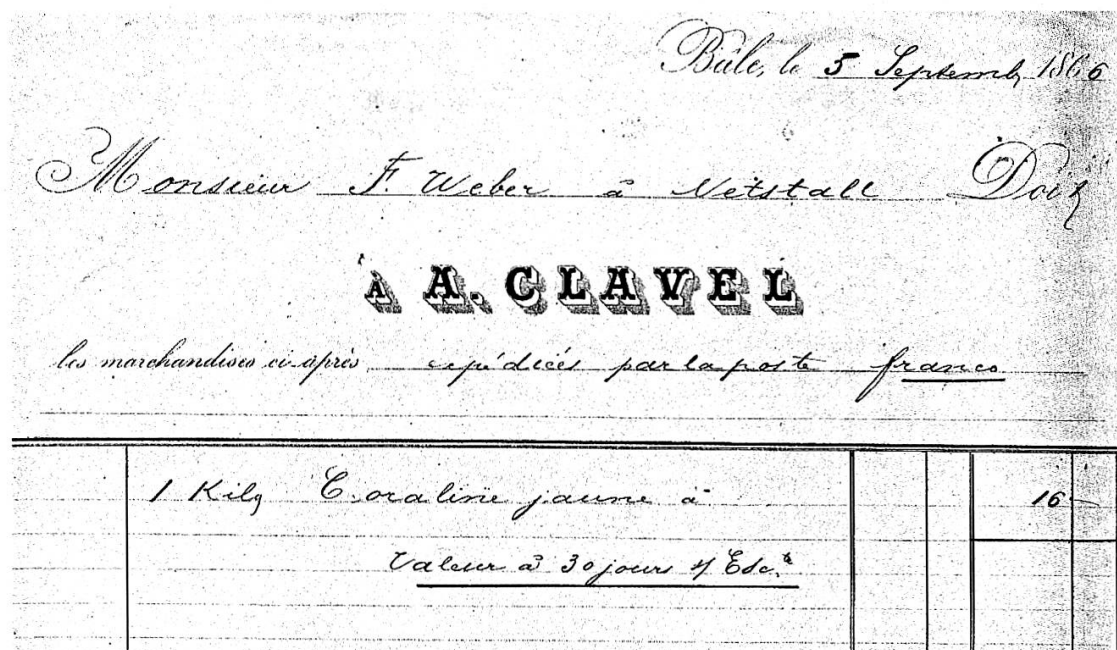 Bâle, le 5 Septemb. 1866
Monsieur F. Weber à Netstall Doit
À A. CLAVEL
les marchandises ci-après expédiées par la poste franco
1 Kilg Coraline jaune à 16 —
Valeur à 30 jours s/ Esc.te